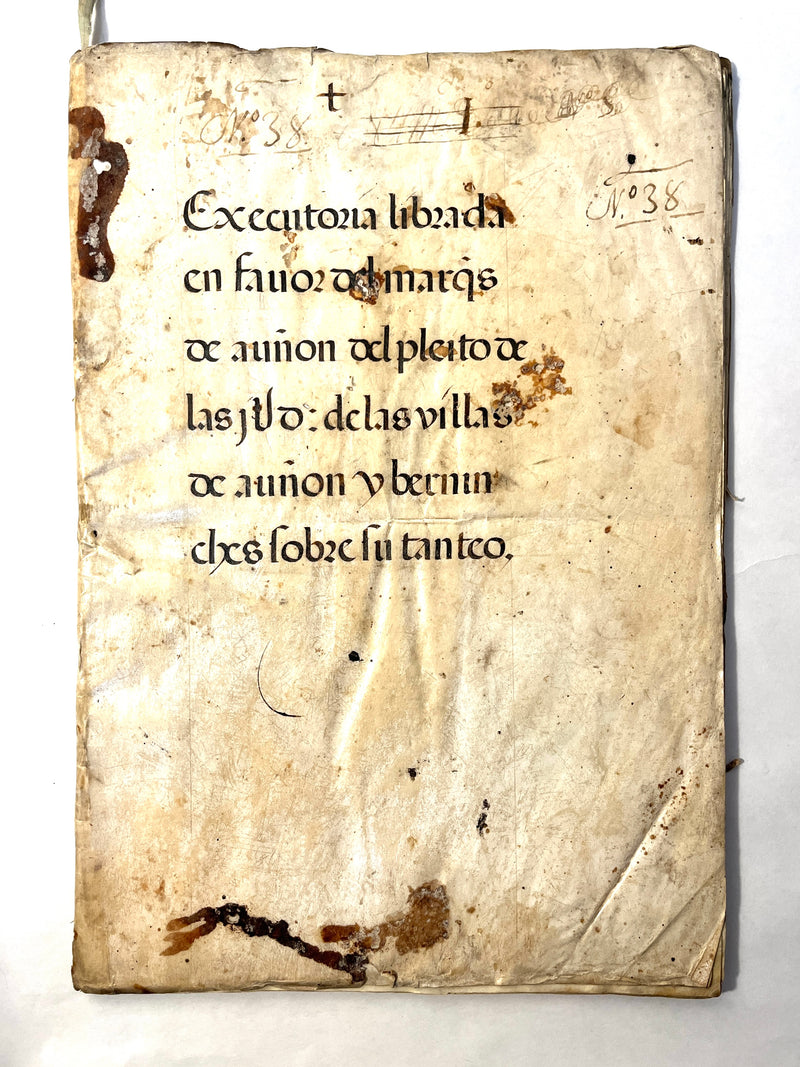 +
N.º 38
I.
N.º 38
Executoria librada
en favor del marq̃s
de auñon del pleito de
las jũD: de las villas
de auñon y bernin
ches sobre su tanteo.